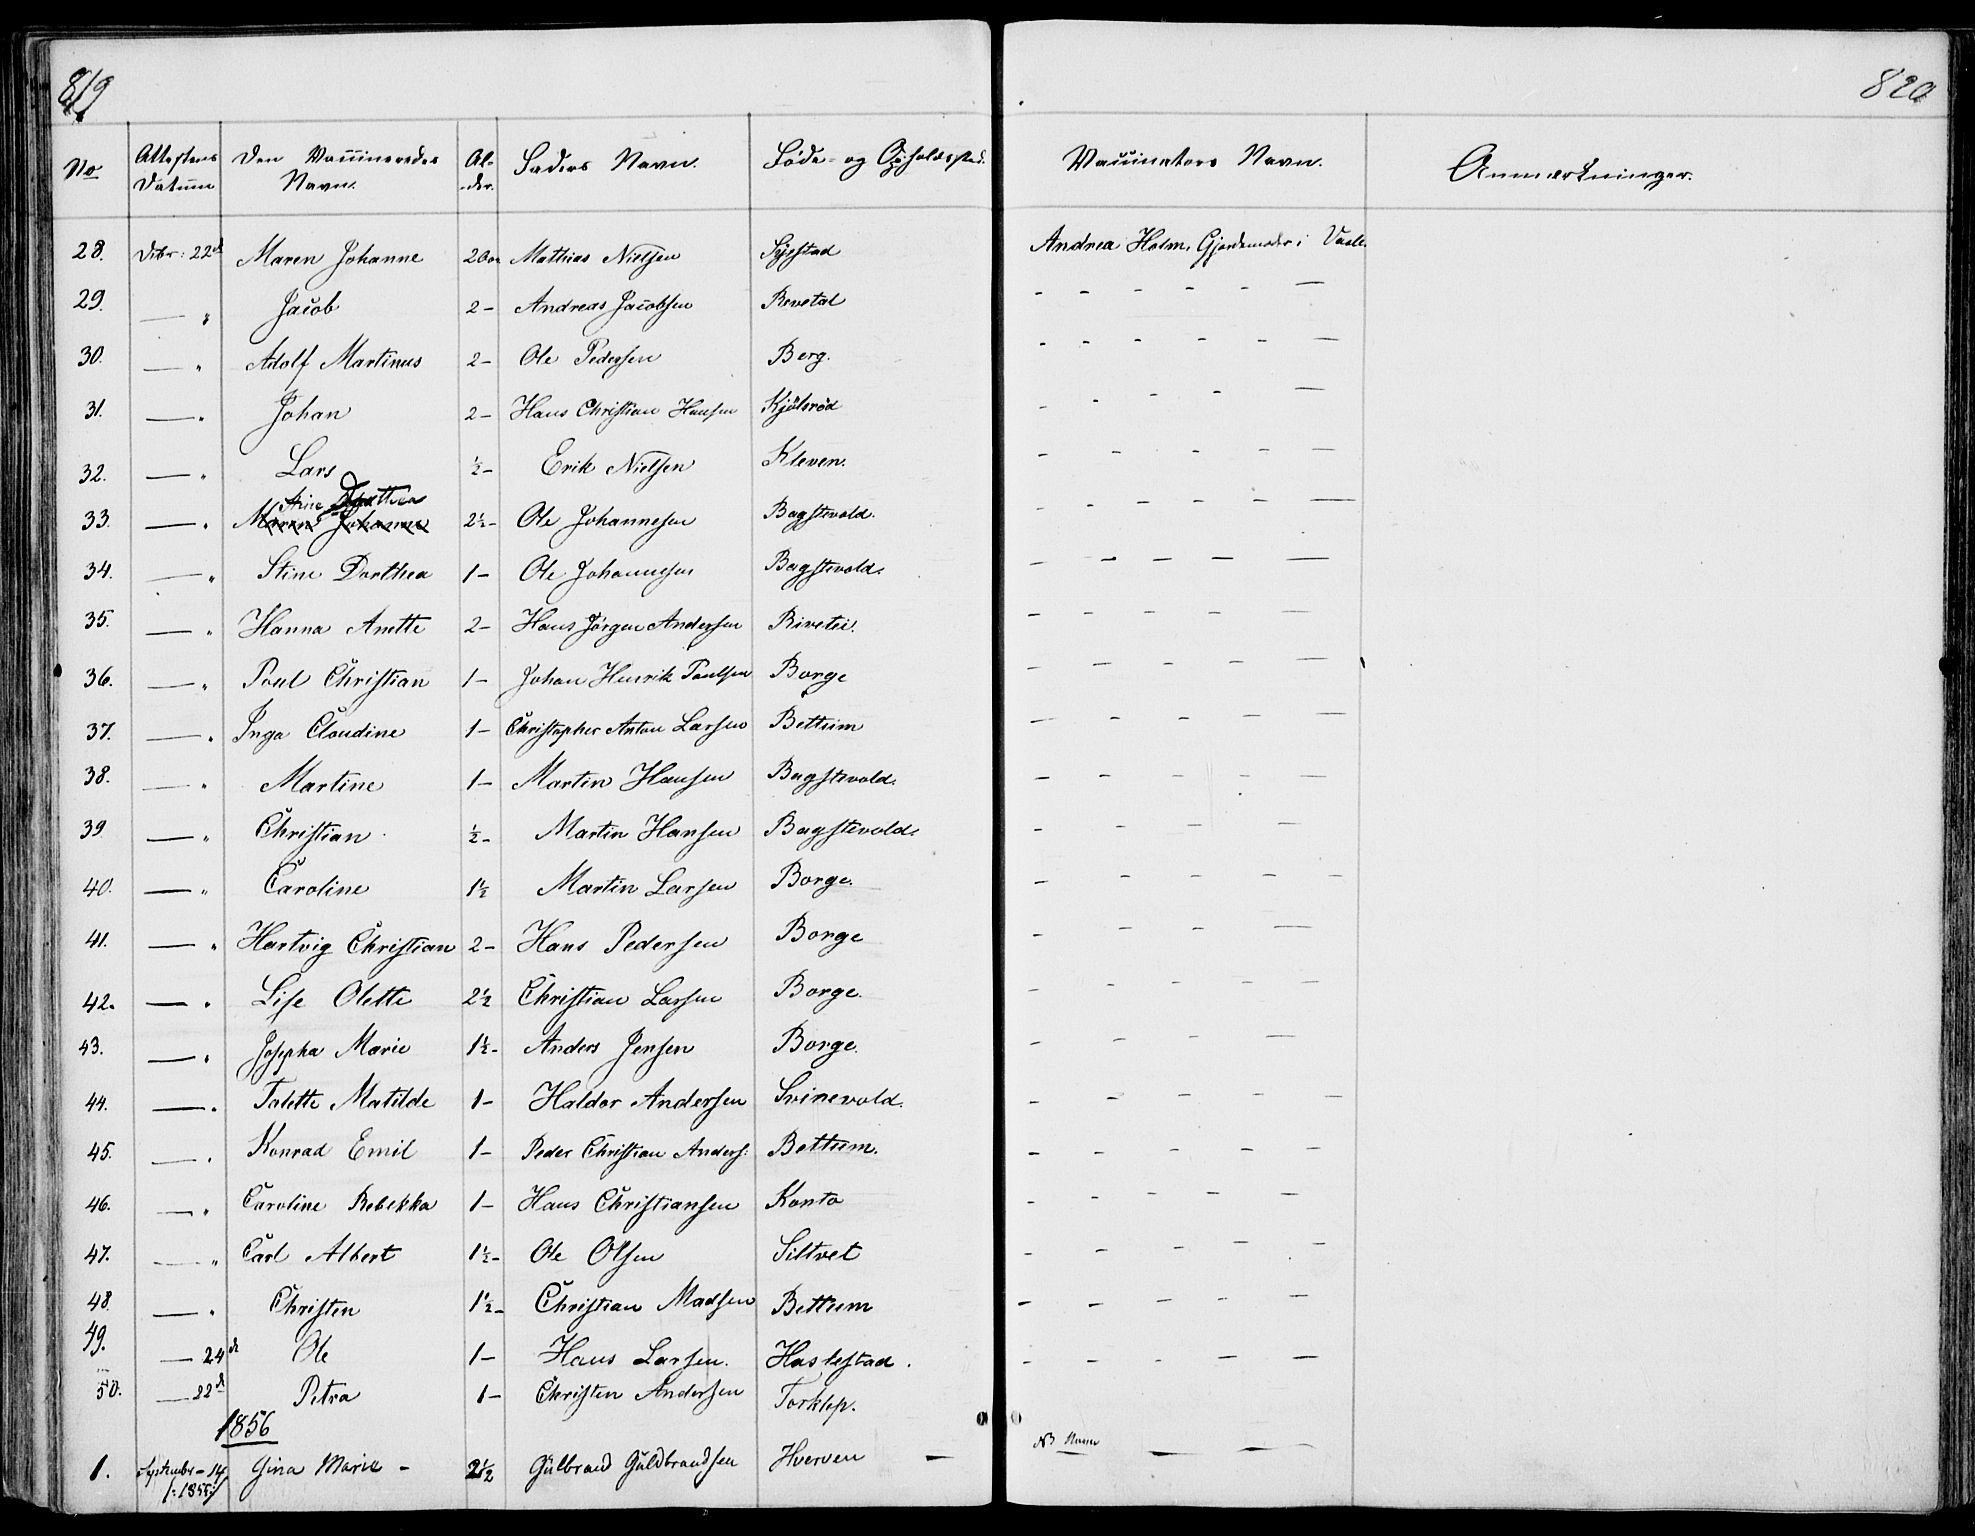 819
820
No Attestens Datum Den Vaccineredes Navn. Al-der. Faders Navn. Føde- og Opholdssted. Vaccinators Navn. Anmærkninger.
28. Dcbr: 22d Maren Johanne 2 Mathias Nielsen Andrea Holm, Gjordemoder i
29. — " Jacob 2 - Andreas Jacobsen Revetal - - - - - —
30. — " Adolf Martinus 2 - Ole Pedersen Berg. - - - - - —
31. — " Johan 2 - Hans Christian Hansen Kjølsrød - - - - —
32. — " Lars ½ - Erik Nielsen Kleven. - - - - —
33. — " Stine Dorthea Maren Johanne 2½ - Ole Johannesen Bagstevold. - - - - —
34. — " Stine Dorthea 1 - Ole Johannesen Bagstevold. - - - - —
35. — " Hanna Anette 2 - Hans Jørgen Andersen - - - - —
36. — " Poul Christian 1 - Johan Henrik Paulsen Borge - - - - —
37. — " Inga Claudine 1 - Christopher Anton Larsen Bettum - - - - —
38. — " Martine 1 - Martin Hansen Bagstevold. - - - - —
39. — " Christian ½ - Martin Hansen Bagstevold. - - - —
40. — " Caroline 1½ Martin Larsen Borge. - - - - -
41. — " Hartvig Christian 2 - Hans Pedersen Borge - - - —
42. — " Lise Olette 2½ Christian Larsen Borge. - - - - -
43. — " Josepha Marie 1½ - Anders Jensen Borge. - - - - —
44. — " Talette Matilde 1 - Haldor Andersen Svinevold. - - - - —
45. — " Konrad Emil 1 - Peder Christian Anders: Bettum. - - - - —
46. — " Caroline Rebekka 1 - Hans Christiansen Kanto - - - - —
47. — " Carl Albert 1½ - Ole Olsen Siltvet - - - - -
48. — " Christen 1½ - Christian Madsen Bettum - - - - —
49. — 24d Ole 1 - Hans Larsen. Haslestad. - - - - —
50. — 22d Petra 1 - Christen Andersen Torklep.
1856
1. September - 14 Gina Marie - 2½ Gulbrand Guldbrandsen Hverven — NB — —
/:1855:/